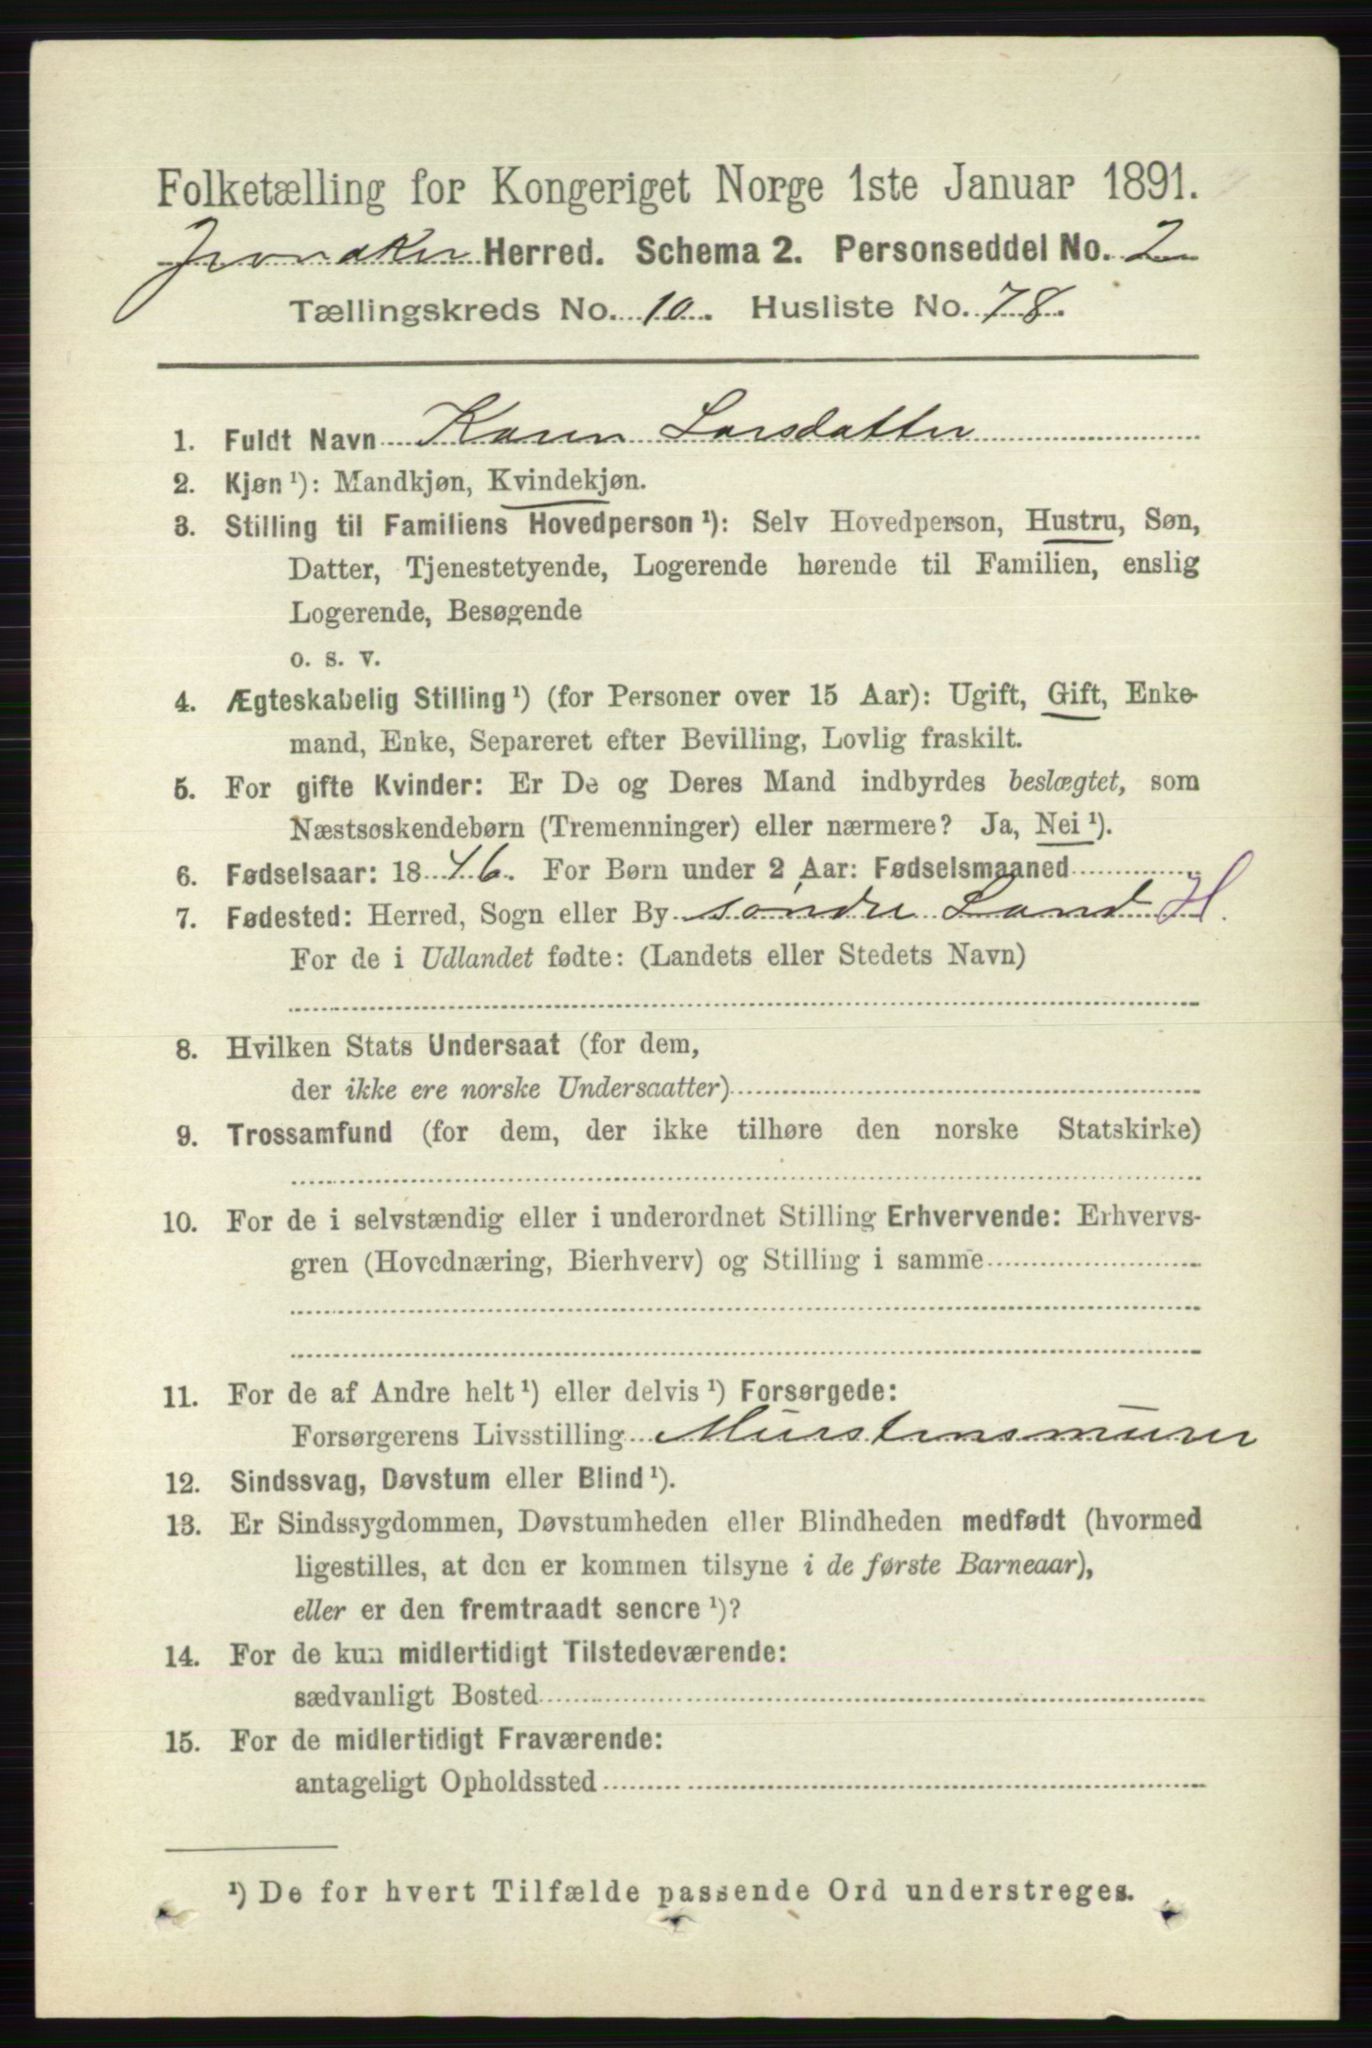 Folketælling for Kongeriget Norge 1ste Januar 1891.
Jevnaker Herred. Schema 2. Personseddel No. 2
Tællingskreds No. 10. Husliste No. 78.
1. Fuldt Navn Karen Larsdatter
2. Kjøn ¹): Mandkjøn, Kvindekjøn.
3. Stilling til Familiens Hovedperson ¹): Selv Hovedperson, Hustru, Søn,
Datter, Tjenestetyende, Logerende hørende til Familien, enslig
Logerende, Besøgende
o. s. v.
4. Ægteskabelig Stilling ¹) (for Personer over 15 Aar): Ugift, Gift, Enke-
mand, Enke, Separeret efter Bevilling, Lovlig fraskilt.
5. For gifte Kvinder: Er De og Deres Mand indbyrdes beslægtet, som
Næstsøskendebørn (Tremenninger) eller nærmere? Ja, Nei ¹).
6. Fødselsaar: 1846. For Børn under 2 Aar: Fødselsmaaned
7. Fødested: Herred, Sogn eller By søndre Land H.
For de i Udlandet fødte: (Landets eller Stedets Navn)
8. Hvilken Stats Undersaat (for dem,
der ikke ere norske Undersaatter)
9. Trossamfund (for dem, der ikke tilhøre den norske Statskirke)
10. For de i selvstændig eller i underordnet Stilling Erhvervende: Erhvervs-
gren (Hovednæring, Bierhverv) og Stilling i samme
11. For de af Andre helt ¹) eller delvis ¹) Forsørgede:
Forsørgerens Livsstilling Murstensmurer
12. Sindssvag, Døvstum eller Blind ¹).
13. Er Sindssygdommen, Døvstumheden eller Blindheden medfødt (hvormed
ligestilles, at den er kommen tilsyne i de første Barneaar),
eller er den fremtraadt senere ¹)?
14. For de kun midlertidigt Tilstedeværende:
sædvanligt Bosted
15. For de midlertidigt Fraværende:
antageligt Opholdssted
¹) De for hvert Tilfælde passende Ord understreges.